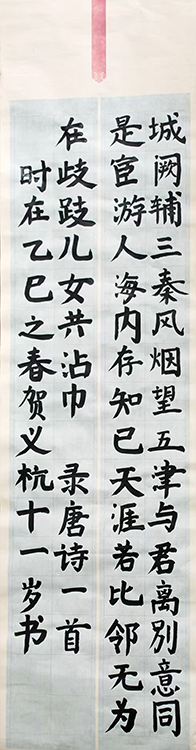 城阙辅三秦风烟望五津与君离别意同
是宦游人海内存知己天涯若比邻无为
在歧路儿女共沾巾 录唐诗一首
时在乙巳之春贺义杭十一岁书